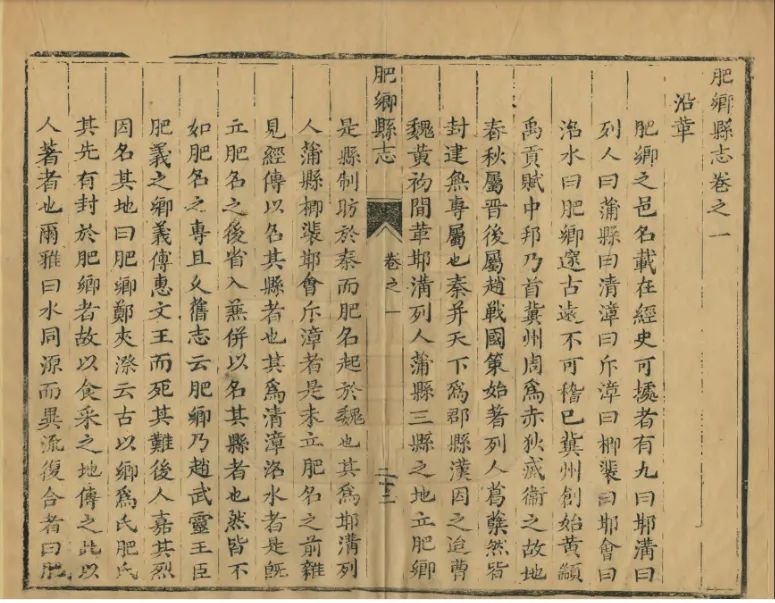 肥鄉縣志卷之一
沿革
肥鄉之邑名載在經史可據者有九曰邯溝曰
列人曰蒲縣曰清漳曰斥漳曰栁裴曰邯會曰
洺水曰肥鄉邃古遠不可稽已冀州創始黄顓
禹貢賦中邦乃首冀州周爲赤狄滅衞之故地
春秋屬晋後屬趙戰國策始著列人葛蘗然皆
封建無專屬也秦并天下爲郡縣漢因之迨曹
魏黄初間革邯溝列人蒲縣三縣之地立肥鄉
肥鄉縣志
卷之一
二十三
是縣制昉於秦而肥名起於魏也其爲邯溝列
人蒲縣栁裴邯會斥漳者是未立肥名之前雜
見經傳以名其縣者也其爲清漳洺水者是旣
立肥名之後省入蕪併以名其縣者也然皆不
如肥名之專且乆舊志云肥鄉乃趙武靈王臣
肥義之鄉義傳惠文王而死其難後人嘉其烈
因名其地曰肥鄉鄭夾漈云古以鄉爲氏肥氏
其先有封於肥鄉者故以食采之地傳之此以
人著者也爾雅曰水同源而異流復合者曰肥